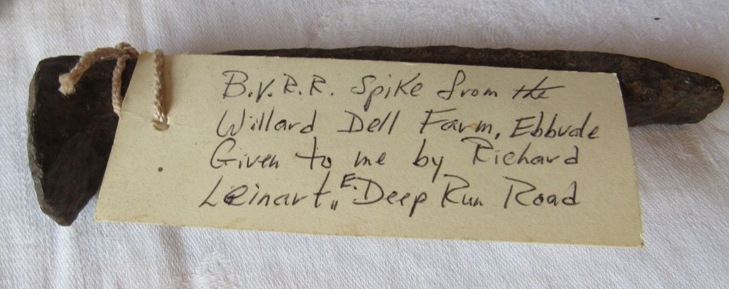 B.V.R.R. Spike from the
Willard Dell Farm, Ebbvale
Given to me by Richard
Leinart,, E. Deep Run Road